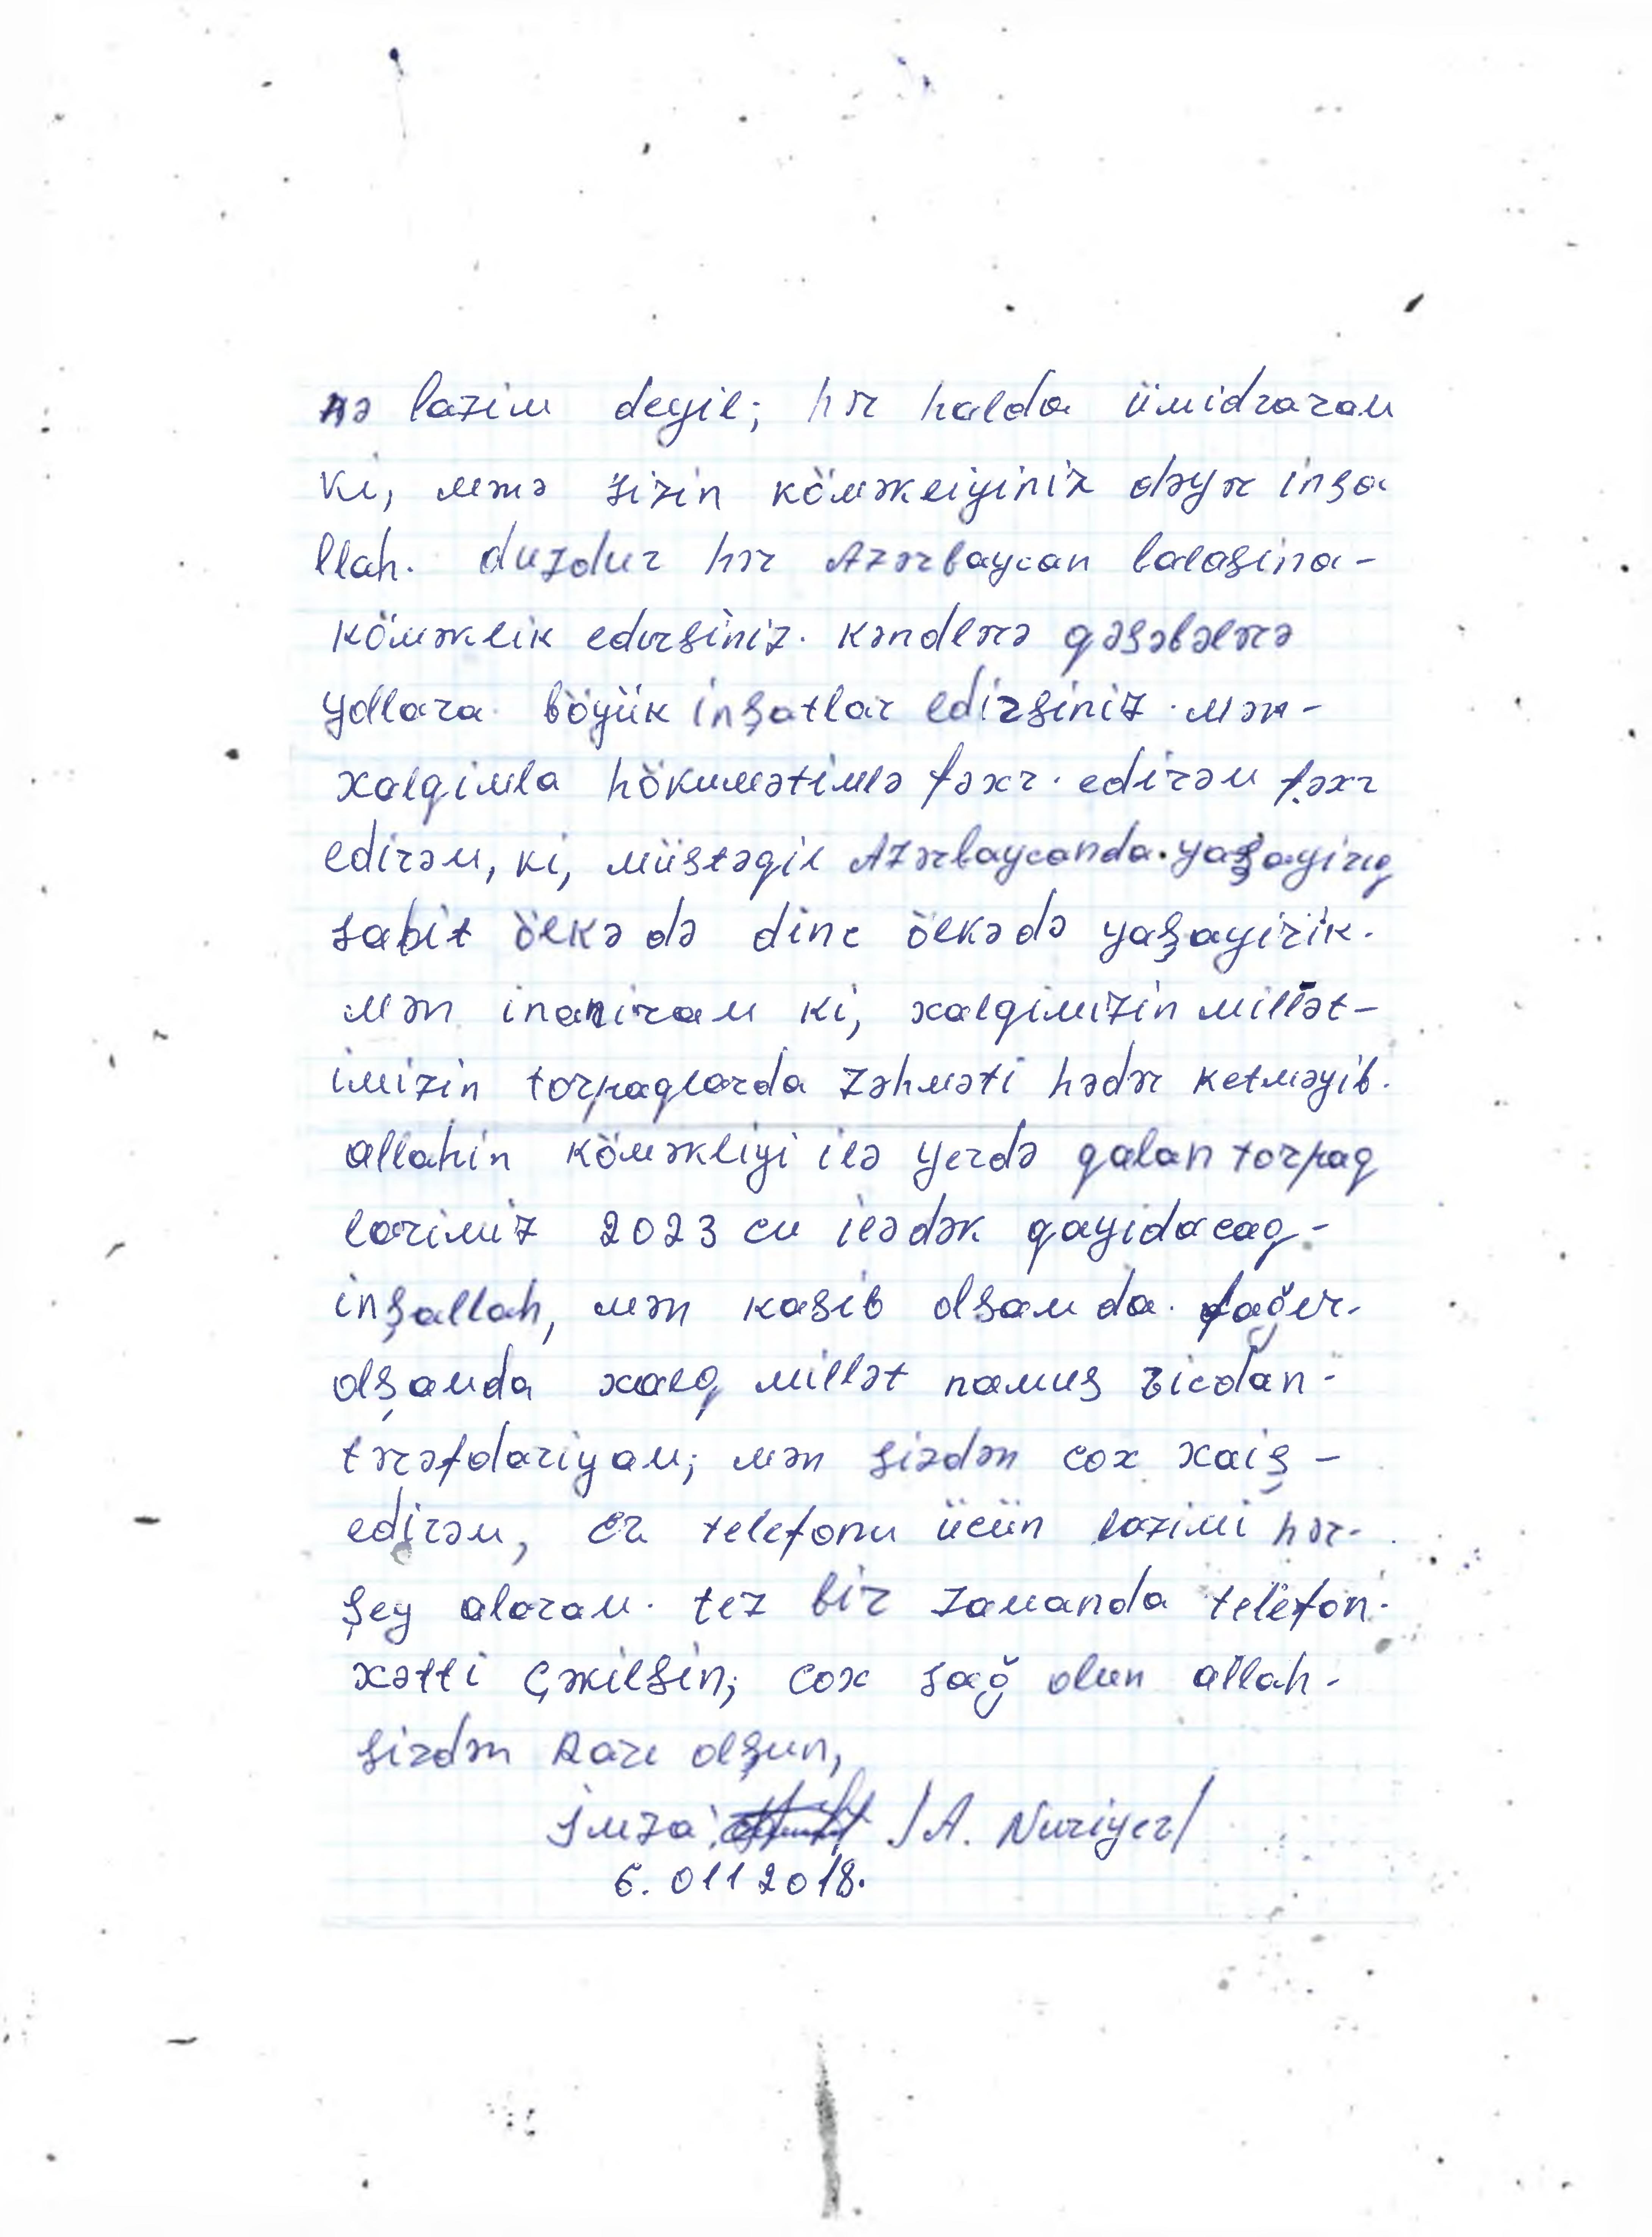 nə lazim deyil; hər halda ümidvaram
ki, mənə sizin köməkliyiniz dəyər inşa
llah. duzdur hər Azərbaycan balasina-
köməklik edirsiniz. kəndlərə qəsəbələrə
yollara böyük inşatlar edirsiniz. mən-
xalqimla hökumətimlə fəxr. edirəm fəxr
edirəm, ki, müstəqil Azərbaycanda. yaşayiriq
sabit ölkə də dinc ölkə də yaşayirik.
mən inaniram ki, xalqimizin millət-
imizin torpaqlarda zəhməti hədər ketməyib.
allahin köməkliyi ilə yerdə qalan torpaq
larimiz 2023 cu ilədək qayidacaq-
inşallah, mən kasib olsam da. fağer.
olsamda xalq millət namus vicdan-
tərəfdariyam; mən sizdən cox xaiş-
edirəm, ev telefonu ücün lazimi hər-
şey alaram. tez bir zamanda telefon.
xətti çəkilsin; cox sağ olun allah-
sizdən Razi olsun,
imza: /A. Nuriyev/
6. 011 2018.